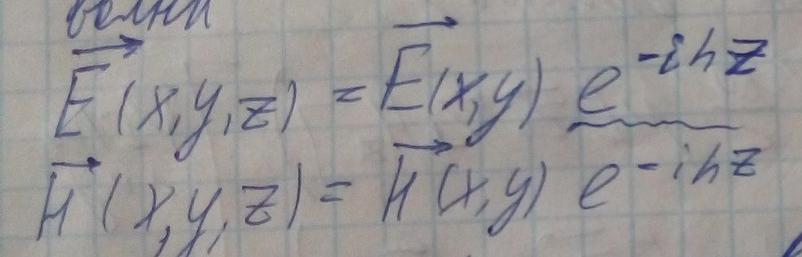 волны
E⃗(x,y,z) = E⃗(x,y) e^{-ihz}
H⃗(x,y,z) = H⃗(x,y) e^{-ihz}